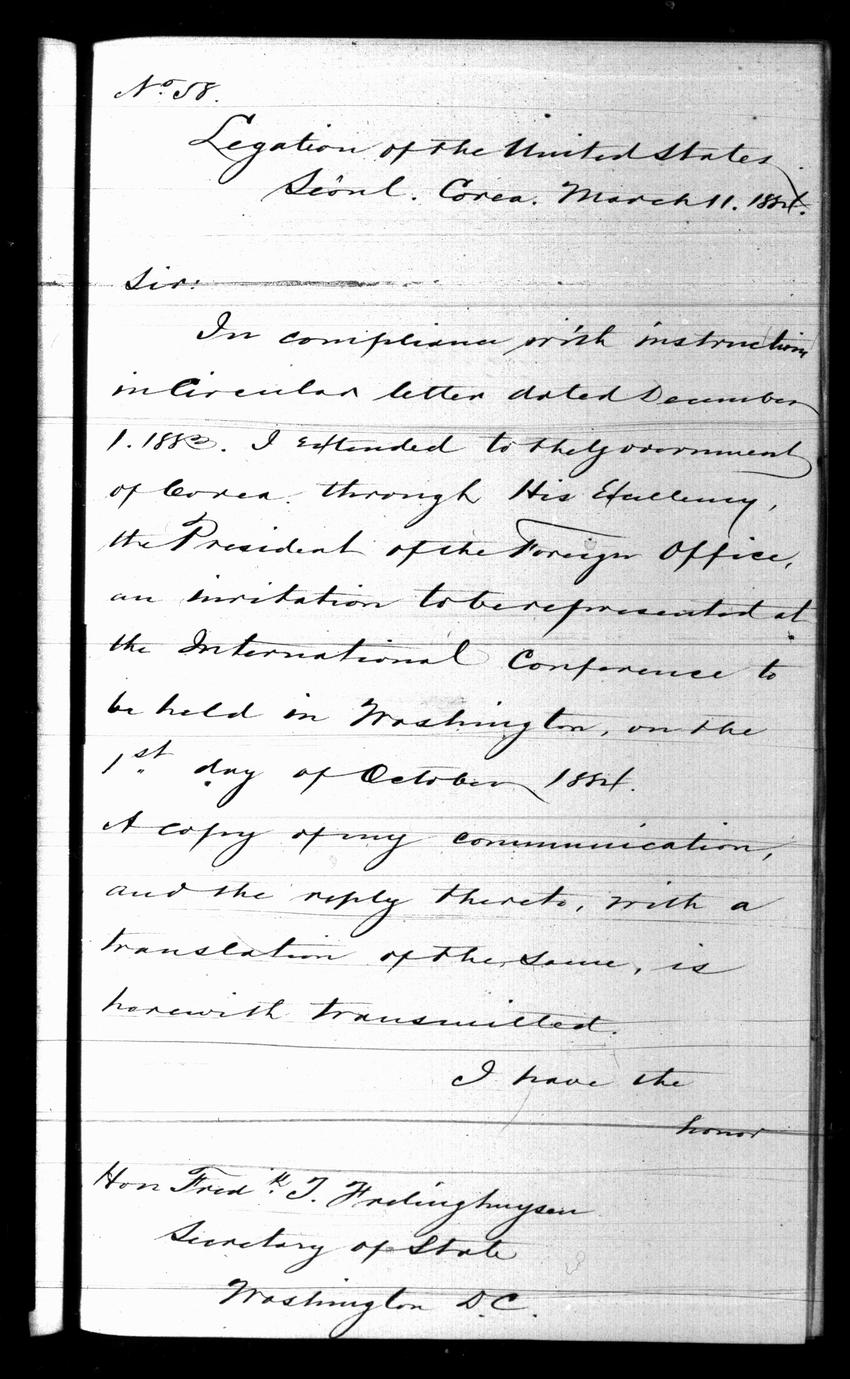 No. 58.
Legation of the United States
Seoul. Corea. March 11. 1884.
Sir:
In compliance with instructions
in Circular letter dated December
1. 1883. I extended to the Government
of Corea. through His Excellency,
the President of the Foreign Office,
an invitation to be represented at
the International Conference to
be held in Washington, on the
1st day of October 1884.
A copy of my communication,
and the reply thereto, with a
translation of the same, is
herewith transmitted.
I have the
honor
Hon Fredk. T. Frelinghuysen
Secretary of State
Washington D.C.